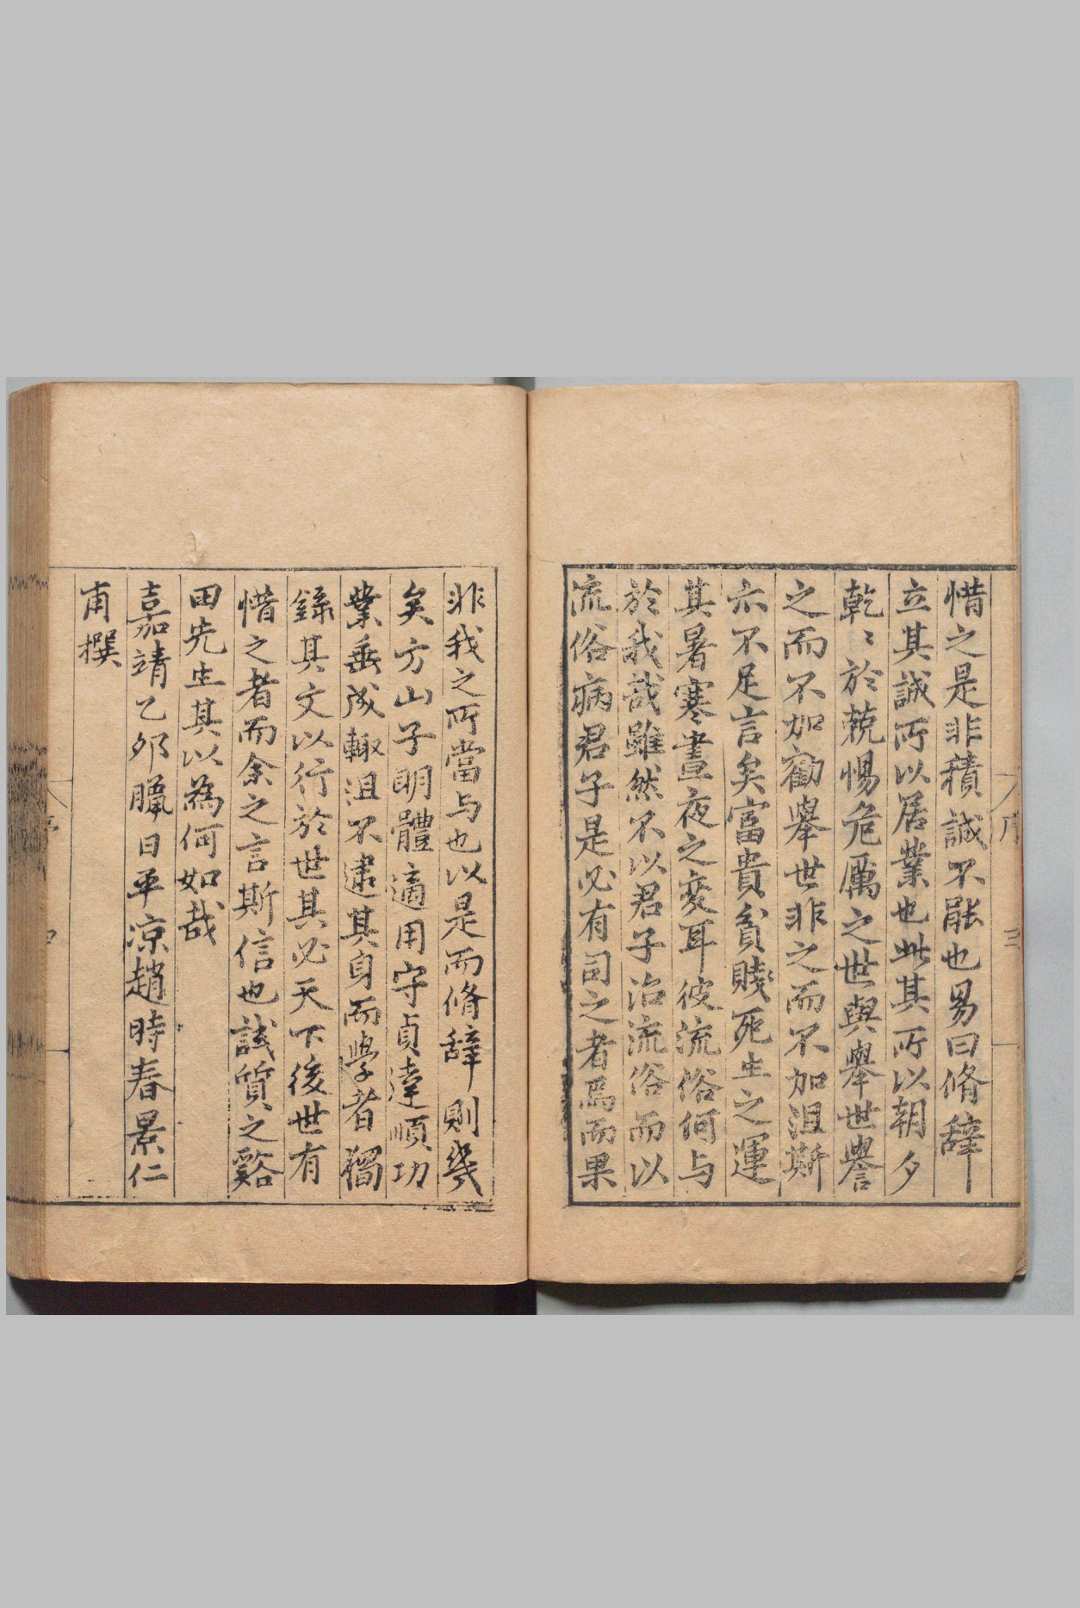 惜之是非積誠不能也易曰脩辭
立其誠所以居業也此其所以朝夕
乾〻於兢惕危厲之世與舉世譽
之而不加勸舉世非之而不加沮斯
亦不足言矣富貴貧賤死生之運
其暑寒晝夜之変耳彼流俗何与
於我哉雖然不以君子治流俗而以
流俗病君子是必有司之者焉而果
非我之所當与也以是而脩辞則幾
矣方山子明體適用守貞達順功
業垂成輙沮不逮其身而學者獨
錄其文以行於世其必天下後世有
惜之者而余之言斯信也試質之谿
田先生其以為何如哉
嘉靖乙夘臘日平凉趙時春景仁
甫撰
序
三
四